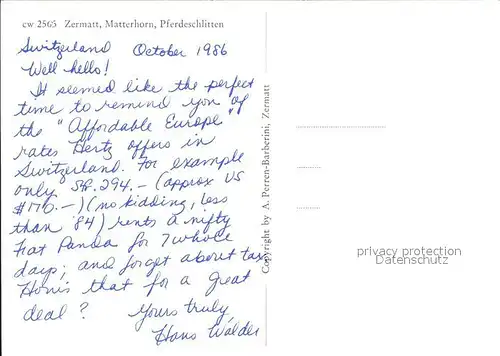 cw 2565 Zermatt, Matterhorn, Pferdeschlitten
Switzerland October 1986
Well hello!
It seemed like the perfect
time to remind you of
the "Affordable Europe"
rates Hertz offers in
Switzerland. For example
only SFr. 294.- (approx US
$170.-) (no kidding, less
than '84) rents a nifty
Fiat Panda for 7 whole
days; and forget about tax.
How's that for a great
deal?
Yours truly
Hans Walder
Copyright by A. Perren-Barberini, Zermatt
privacy protection
Datenschutz